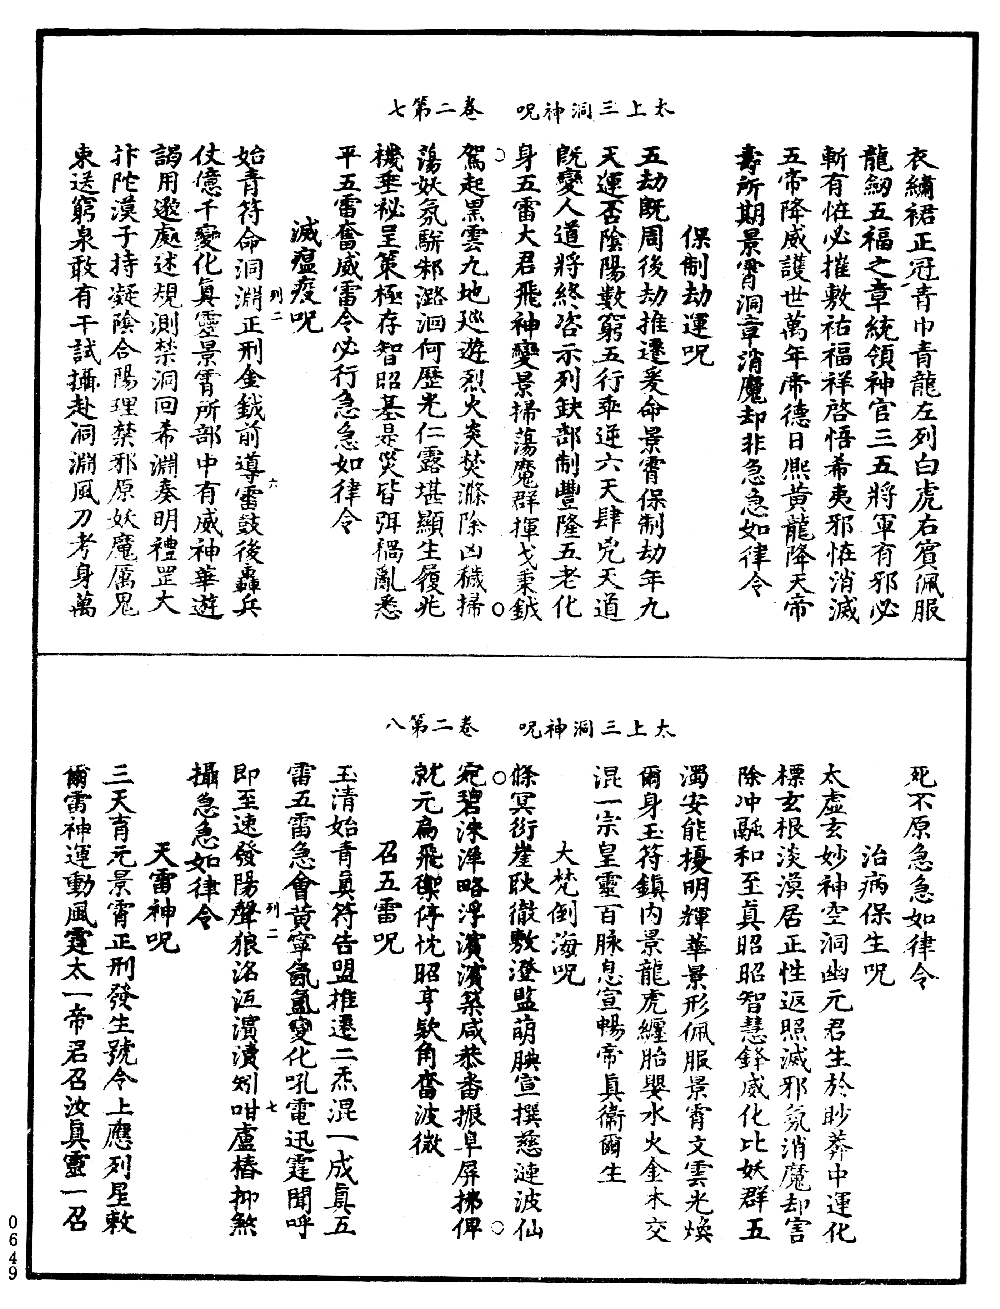 太上三洞神呪　卷二第七
衣繡裙正冠青巾青龍左列白虎右賓佩服
龍劒五福之章統領神官三五將軍有邪必
斬有怪必摧敷祐福祥啓悟希夷邪怪消滅
五帝降威護世萬年帝德日熙黃龍降天帝
壽所期景霄洞章消魔却非急急如律令
保制劫運呪
五劫既周後劫推遷爰命景霄保制劫年九
天運否陰陽數窮五行乖逆六天肆兇天道
既變人道將終咨示列缺部制豐隆五老化
身五雷大君飛神變景掃蕩魔群揮戈秉鉞
駕起黑雲九地巡遊烈火炎焚滌除凶穢掃
蕩妖氛駢邾潞洄何歷光仁露堪顯生履兆
禨垂祕呈策極存智昭基是災皆弭禍亂悉
平五雷奮威雷令必行急急如律令
滅瘟疫呪
始青符命洞淵正刑金鉞前導雷鼓後轟兵
仗億千變化真靈景霄所部中有威神華遊
謁用邀處述規測禁洞回希淵奏明禮罡大
卝陀漠子持凝陰合陽理禁邪原妖魔厲鬼
束送窮泉敢有干試攝赴洞淵風刀考身萬
列二
六
太上三洞神呪　卷二第八
死不原急急如律令
治病保生呪
太虛玄妙神空洞幽元君生於眇莽中運化
標玄根淡漠居正性返照滅邪氛消魔却害
除冲融和至真昭昭智慧鋒威化比妖群五
濁安能擾明輝華景形佩服景霄文雲光煥
爾身玉符鎮内景龍虎纏胎嬰水火金木交
混一宗皇靈百脉息宣暢帝真衛爾生
大梵倒海呪
倏冥衔崖耿徹敷澄監萌腆宣撰慈漣波仙
宛碧洙洋略浮濱濱䓘咸恭番振阜屏拂俾
就元扃飛禦停忱昭亨欵角奮波微
召五雷呪
玉清始青真符告盟推遷二炁混一成真五
雷五雷急會黄寧氤氳變化吼電迅霆聞呼
即至速發陽聲狼洛沍濱瀆矧喢盧椿抑煞
攝急急如律令
天雷神呪
三天育元景霄正刑發生號令上應列星敕
爾雷神運動風霆太一帝君召汝真靈一召
列二
七
0649